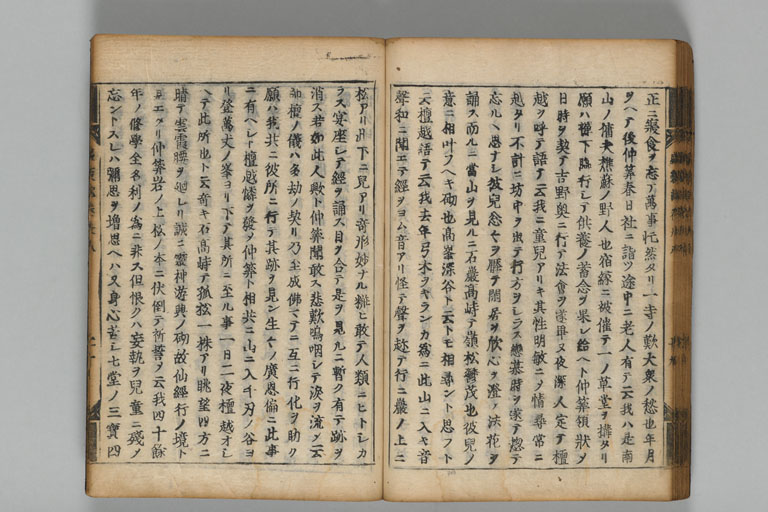 正ニ寢食ヲ忘テ萬事忙然タリ一寺ノ歎大衆ノ愁也年月
ヲヘテ後仲算春日社ニ詣ツ途中ニ老人有テ云我ハ是南
山ノ樵夫樵蘇ノ野人也宿縁ニ被催テ一ノ草堂ヲ搆タリ
願ハ檀下臨行シテ供養ノ蓄念ヲ果シ給ヘト仲算領狀メ
日時ヲ契テ吉野奥ニ行テ法會ヲ遂畢又夜深人定テ檀
越ヲ呼テ語テ云我ニ童兒アリキ其性明敏ニメ情尋常ニ
越タリ不計ニ坊中ヲ出テ行方ヲシラス戀慕時ヲ逐テ惣テ
忘ルヽ思ナシ彼兒忩々ヲ厭テ閑居ヲ欣心ヲ澄テ法花ヲ
誦ス而ルニ當山ヲ見ルニ石巖高峙テ嶺松欝茂也彼兒ノ
意ニ相叶フヘキ砌也高峯深谷ト云トモ相尋ント思フト
云檀越語テ云我去年弓木ヲキランカ爲ニ此山ニ入キ音
聲和ニ聞エテ經ヲヨム音アリ怪テ聲ヲ趁テ行ニ巖ノ上ニ
松アリ其下ニ兒アリ奇形妙ナル粧ヒ敢テ人類ニヒトシカ
ラス宴座シテ經ヲ誦ス目ヲ合テ是ヲ見ルニ暫ク有テ跡ヲ
消ス若如此人歟ト仲算聞敢ス悲歎嗚咽シテ涙ヲ流メ云
師檀ノ儀ハ多劫ノ契リ乃至成佛マテニ互ニ行化ヲ助ク
願ハ我共ニ彼所ニ行テ其跡ヲ見ン生々ノ廣恩偏ニ此事
ニ有ヘシト檀越憐ヲ發メ仲算ト相共ニ山ニ入千刃ノ谷ヨ
リ登萬丈ノ峯ヨリ下テ其所ニ至ル事一日二夜檀越オシ
ヘテ此所也ト云奇キ石高峙テ孤松一株アリ眺望四方ニ
晴テ雲霞腰ヲ廻レリ誠ニ靈神遊興ノ砌故仙經行ノ境ト
見エタリ仲算岩ノ上松ノ本ニ伏倒テ祈誓メ云我四十餘
年ノ修學全名利ノ爲ニ非ス但恨クハ妄執ヲ兒童ニ殘メ
忘ントスレハ彌思ヲ増思ヘハ又身心苦シ七堂ノ三寶四